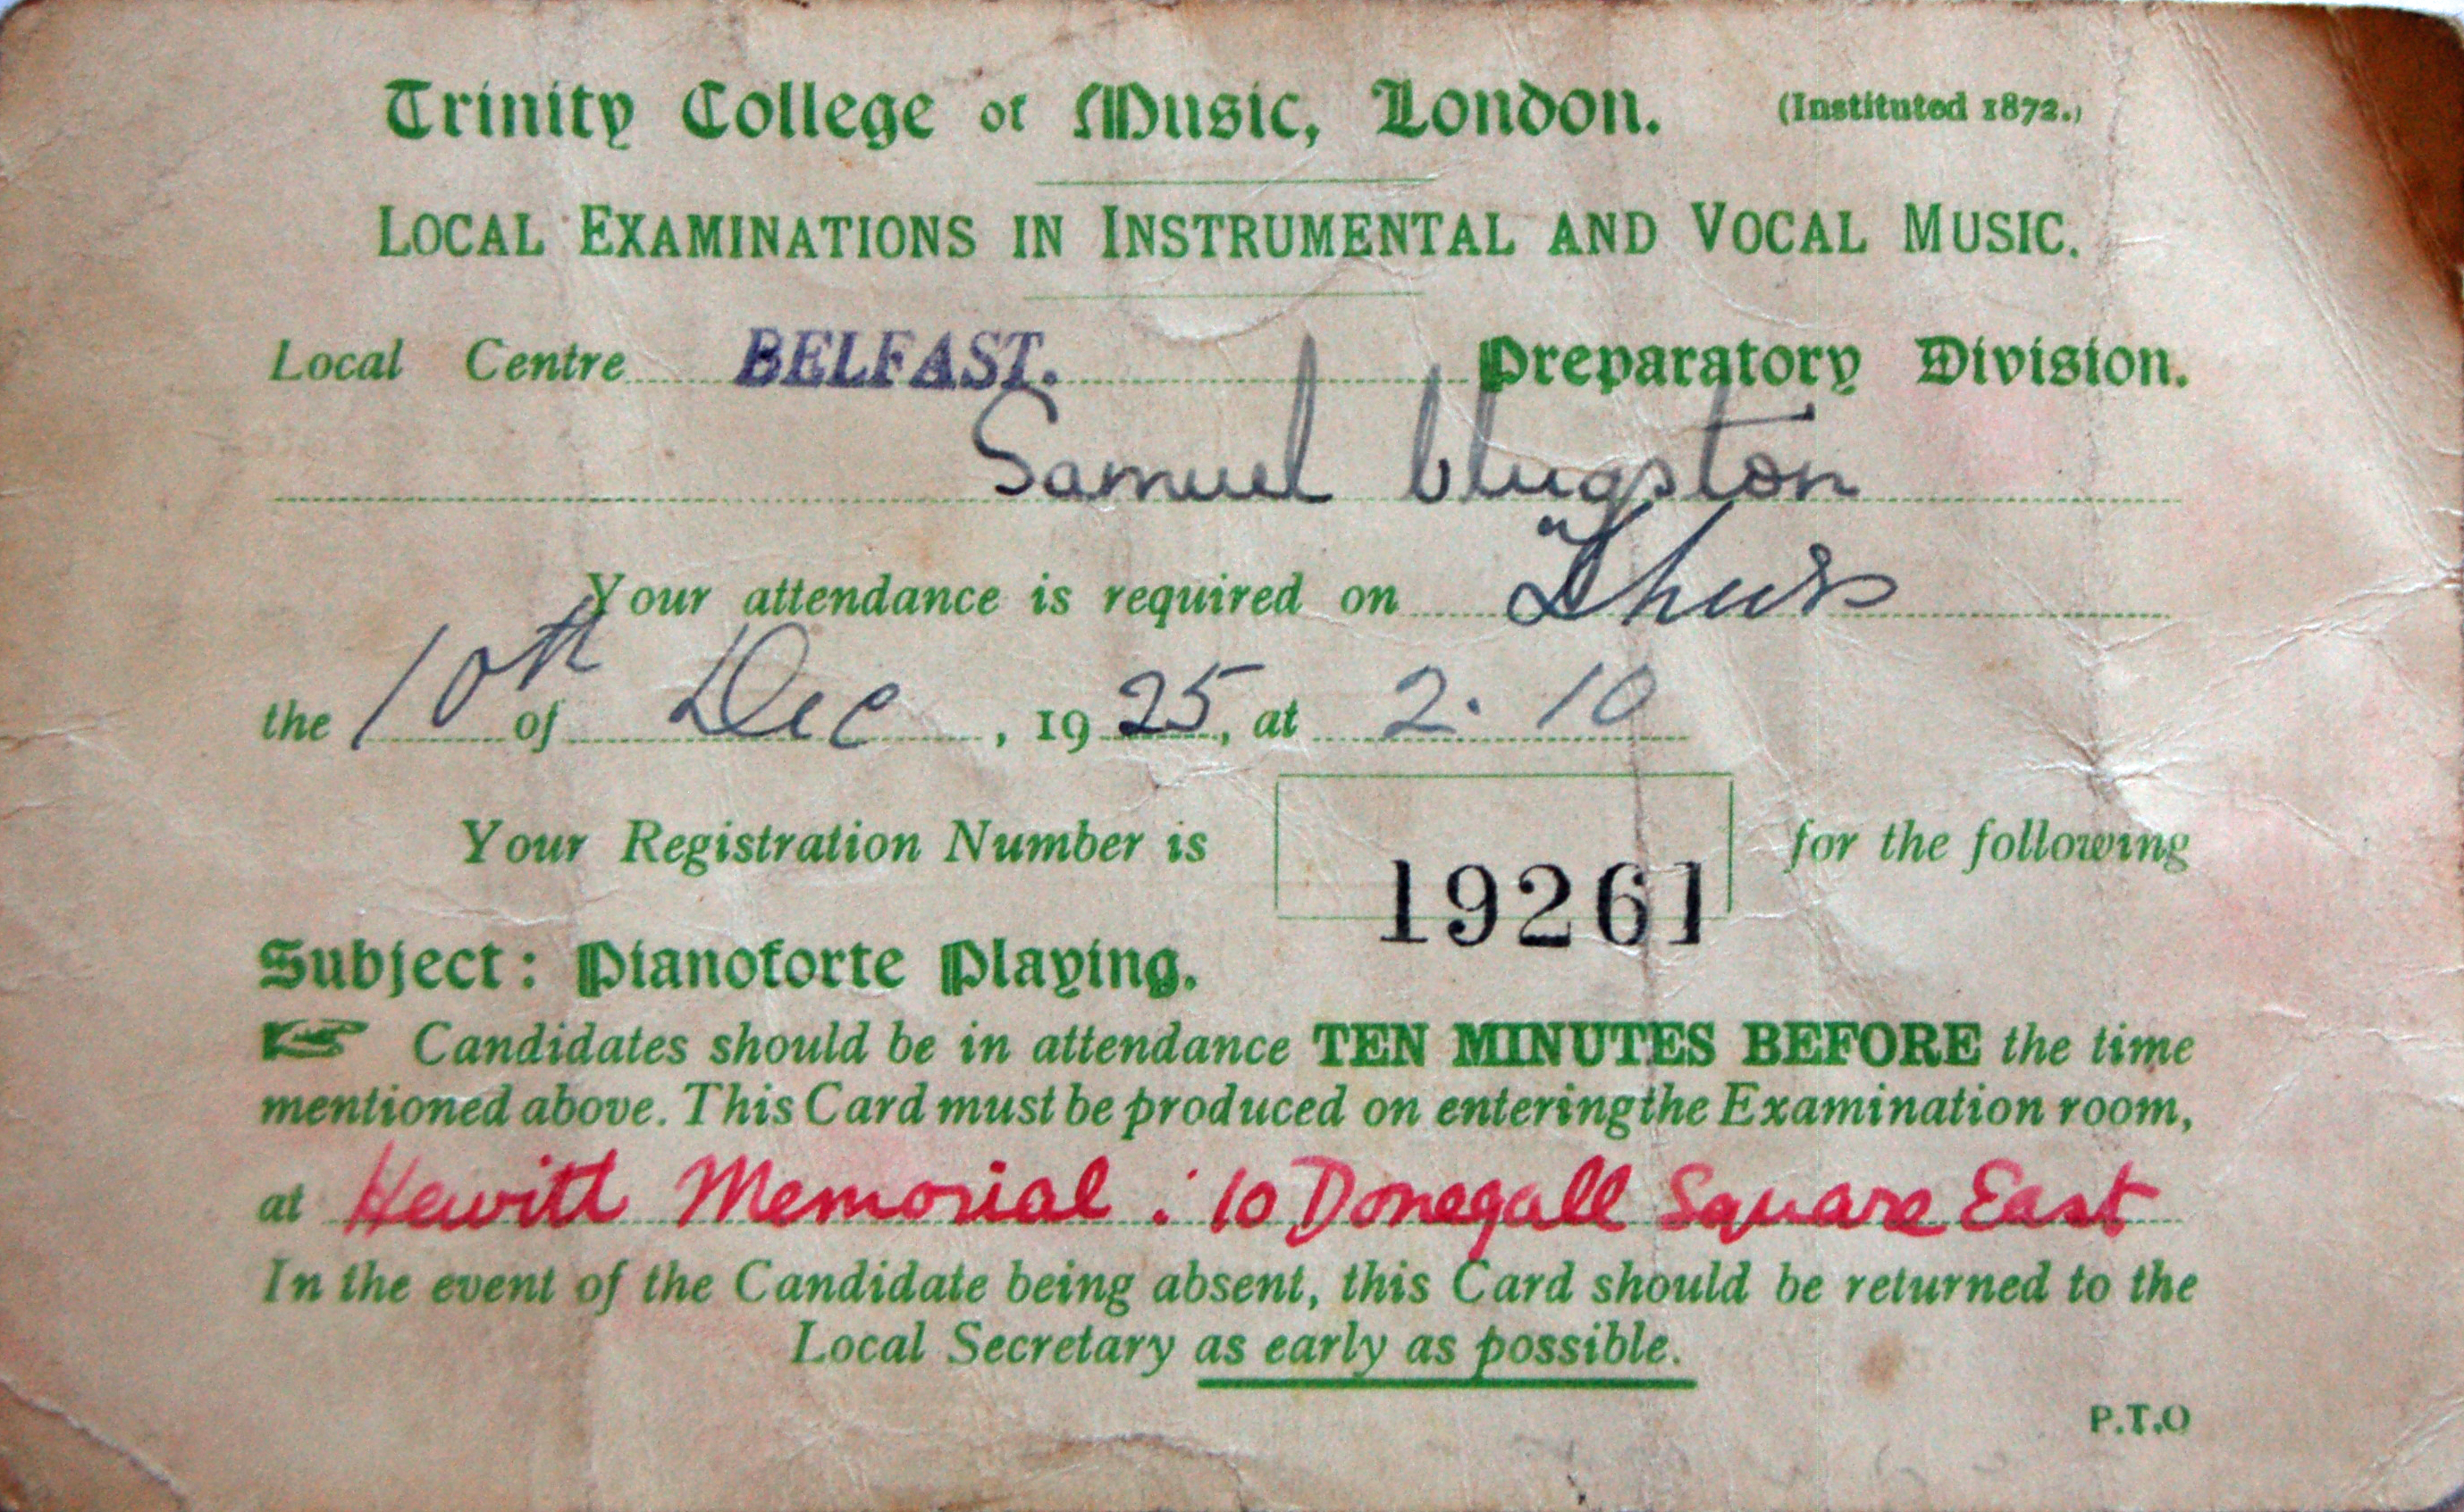 Trinity College of Music, London. (Instituted 1872.)
LOCAL EXAMINATIONS IN INSTRUMENTAL AND VOCAL MUSIC.
Local Centre BELFAST. Preparatory Division.
Samuel Clugston
Your attendance is required on Thurs
the 10th of Dec, 1925, at 2.10
Your Registration Number is 19261 for the following
Subject: Pianoforte Playing.
☞ Candidates should be in attendance TEN MINUTES BEFORE the time
mentioned above. This Card must be produced on entering the Examination room,
at Hewitt Memorial : 10 Donegall Square East
In the event of the Candidate being absent, this Card should be returned to the
Local Secretary as early as possible.
P.T.O